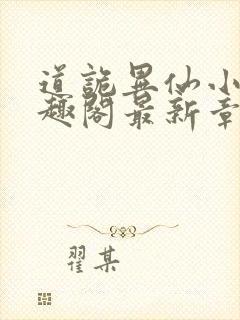 道詭異仙小
趣閣最新章
翟某